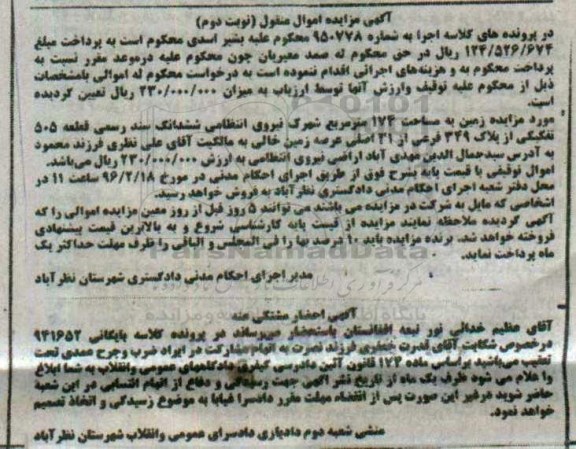 آگهی مزایده اموال منقول (نوبت دوم)
در پرونده های کلاسه اجرا به شماره ۹۵۰۷۷۸ محکوم علیه بشیر اسدی محکوم است به پرداخت مبلغ
۱۲۴/۵۲۶/۶۷۴ ریال در حق محکوم له صمد معیریان چون محکوم علیه درموعد مقرر نسبت به
پرداخت محکوم به و هزینه‌های اجرائی اقدام ننموده است به درخواست محکوم له اموالی بامشخصات
ذیل از محکوم علیه توقیف وارزش آنها توسط ارزیاب به میزان ۲۳۰/۰۰۰/۰۰۰ ریال تعیین گردیده
است.
مورد مزایده زمین به مساحت ۱۷۴ مترمربع شهرک نیروی انتظامی ششدانگ سند رسمی قطعه ۵۰۵
تفکیکی از پلاک ۳۴۹ فرعی از ۳۱ اصلی عرصه زمین خالی به مالکیت آقای علی نظری فرزند محمود
به آدرس سیدجمال الدین مهدی آباد اراضی نیروی انتظامی به ارزش ۲۳۰/۰۰۰/۰۰۰ ریال می‌باشد.
اموال توقیفی با قیمت پایه بشرح فوق از طریق اجرای احکام مدنی در مورخ ۹۶/۲/۱۸ ساعت ۱۱ در
محل دفتر شعبه اجرای احکام مدنی دادگستری نظرآباد به فروش خواهد رسید.
اشخاصی که مایل به شرکت در مزایده می باشند می توانند ۵ روز قبل از روز معین مزایده اموالی را که
آگهی گردیده ملاحظه نمایند مزایده از قیمت پایه کارشناسی شروع و به بالاترین قیمت پیشنهادی
فروخته خواهد شد. برنده مزایده باید ۱۰ درصد بها را فی المجلس و الباقی را ظرف مهلت حداکثر یک
ماه پرداخت نماید.
مدیر اجرای احکام مدنی دادگستری شهرستان نظرآباد
ParsNamadData
آگهی احضار متهم
آقای عظیم خدائی نور تبعه افغانستان باستحضار میرساند در پرونده کلاسه بایگانی ۹۴۱۶۵۲
درخصوص شکایت آقای قدرت خطیری فرزند نصرت به اتهام مشارکت در ایراد ضرب وجرح عمدی تحت
تعقیب می‌باشید براساس ماده ۱۷۴ قانون آئین دادرسی کیفری دادگاههای عمومی وانقلاب به شما ابلاغ
واعلام می شود ظرف یک ماه از تاریخ نشر آگهی جهت رسیدگی و دفاع از اتهام انتسابی در این شعبه
حاضر شوید درغیر این صورت پس از انقضاء مهلت مقرر دادسرا غیابا به موضوع رسیدگی و اتخاذ تصمیم
خواهد نمود.
منشی شعبه دوم دادیاری دادسرای عمومی وانقلاب شهرستان نظرآباد